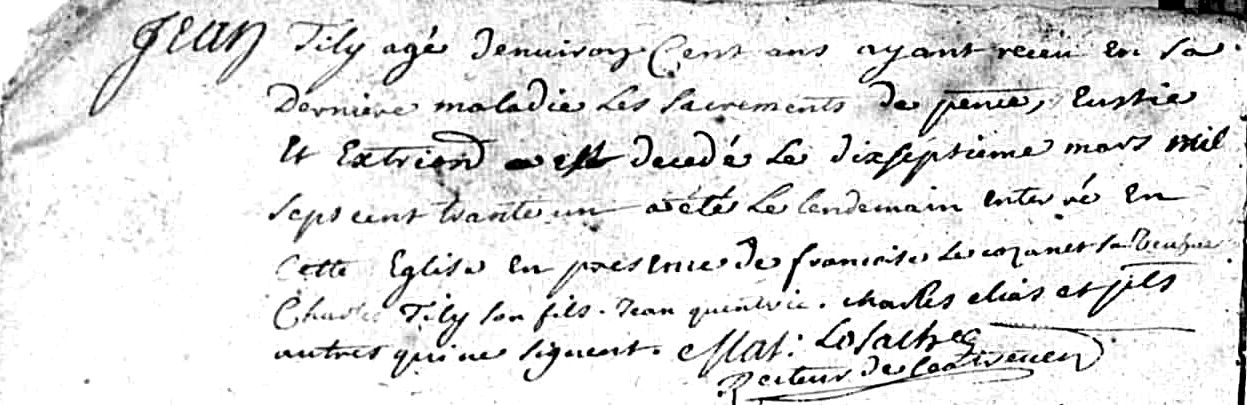 Jean Tily agé denuiron Cent ans ayant receu en sa
Derniere maladie Les sacrements de pence, Eustie
Et Extrion a est decedé Le dixseptieme mars mil
sept cent trante un a été Le lendemain enterré En
Cette Eglise en presence de francoise Le cozanet sa veufue
Charles Tily son fils. Jean quentric. charles elias et pils
autres qui ne signent. Mat: Lesaltre
Recteur de